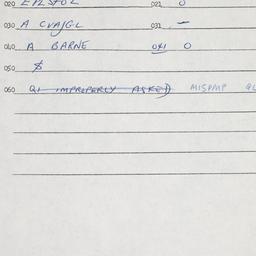 020 021 0
030 A 031 -
040 A BARNE 041 0
050 $
060 Q1 IMPROPERLY ASKED MISPMP